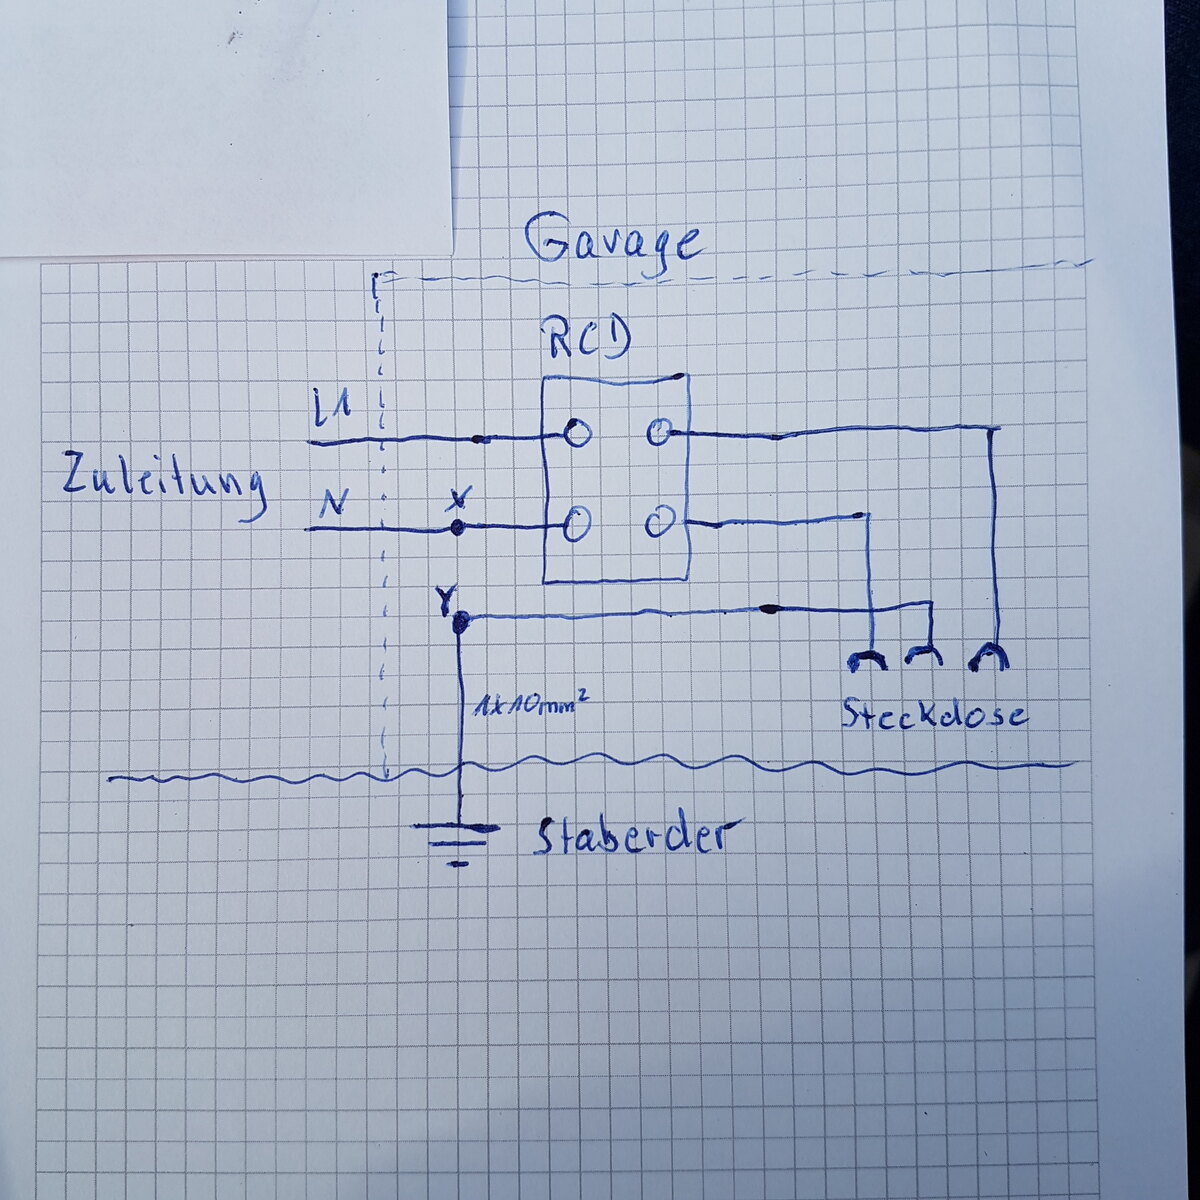 Garage
RCD
L1
Zuleitung
N
X
Y
1x10mm²
Steckdose
Staberder